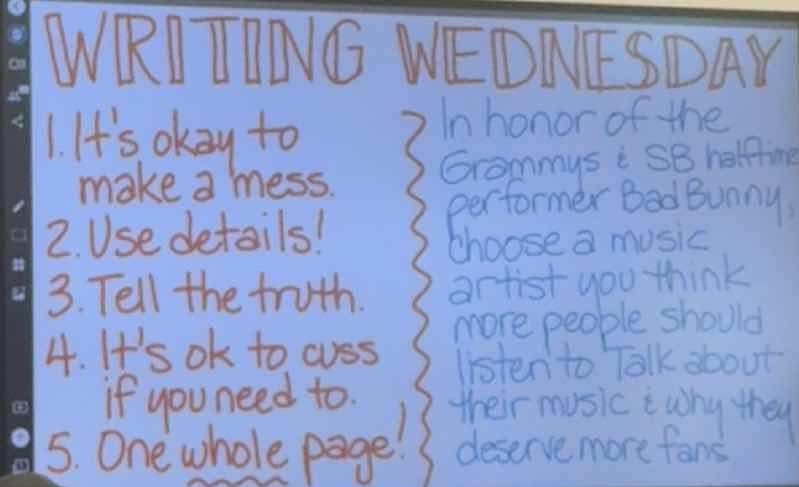 WRITING WEDNESDAY
1. It's okay to
make a mess.
2. Use details!
3. Tell the truth.
4. It's ok to cuss
if you need to.
5. One whole page!
In honor of the
Grammys & SB halftime
performer Bad Bunny,
choose a music
artist you think
more people should
listen to Talk about
their music & why they
deserve more fans